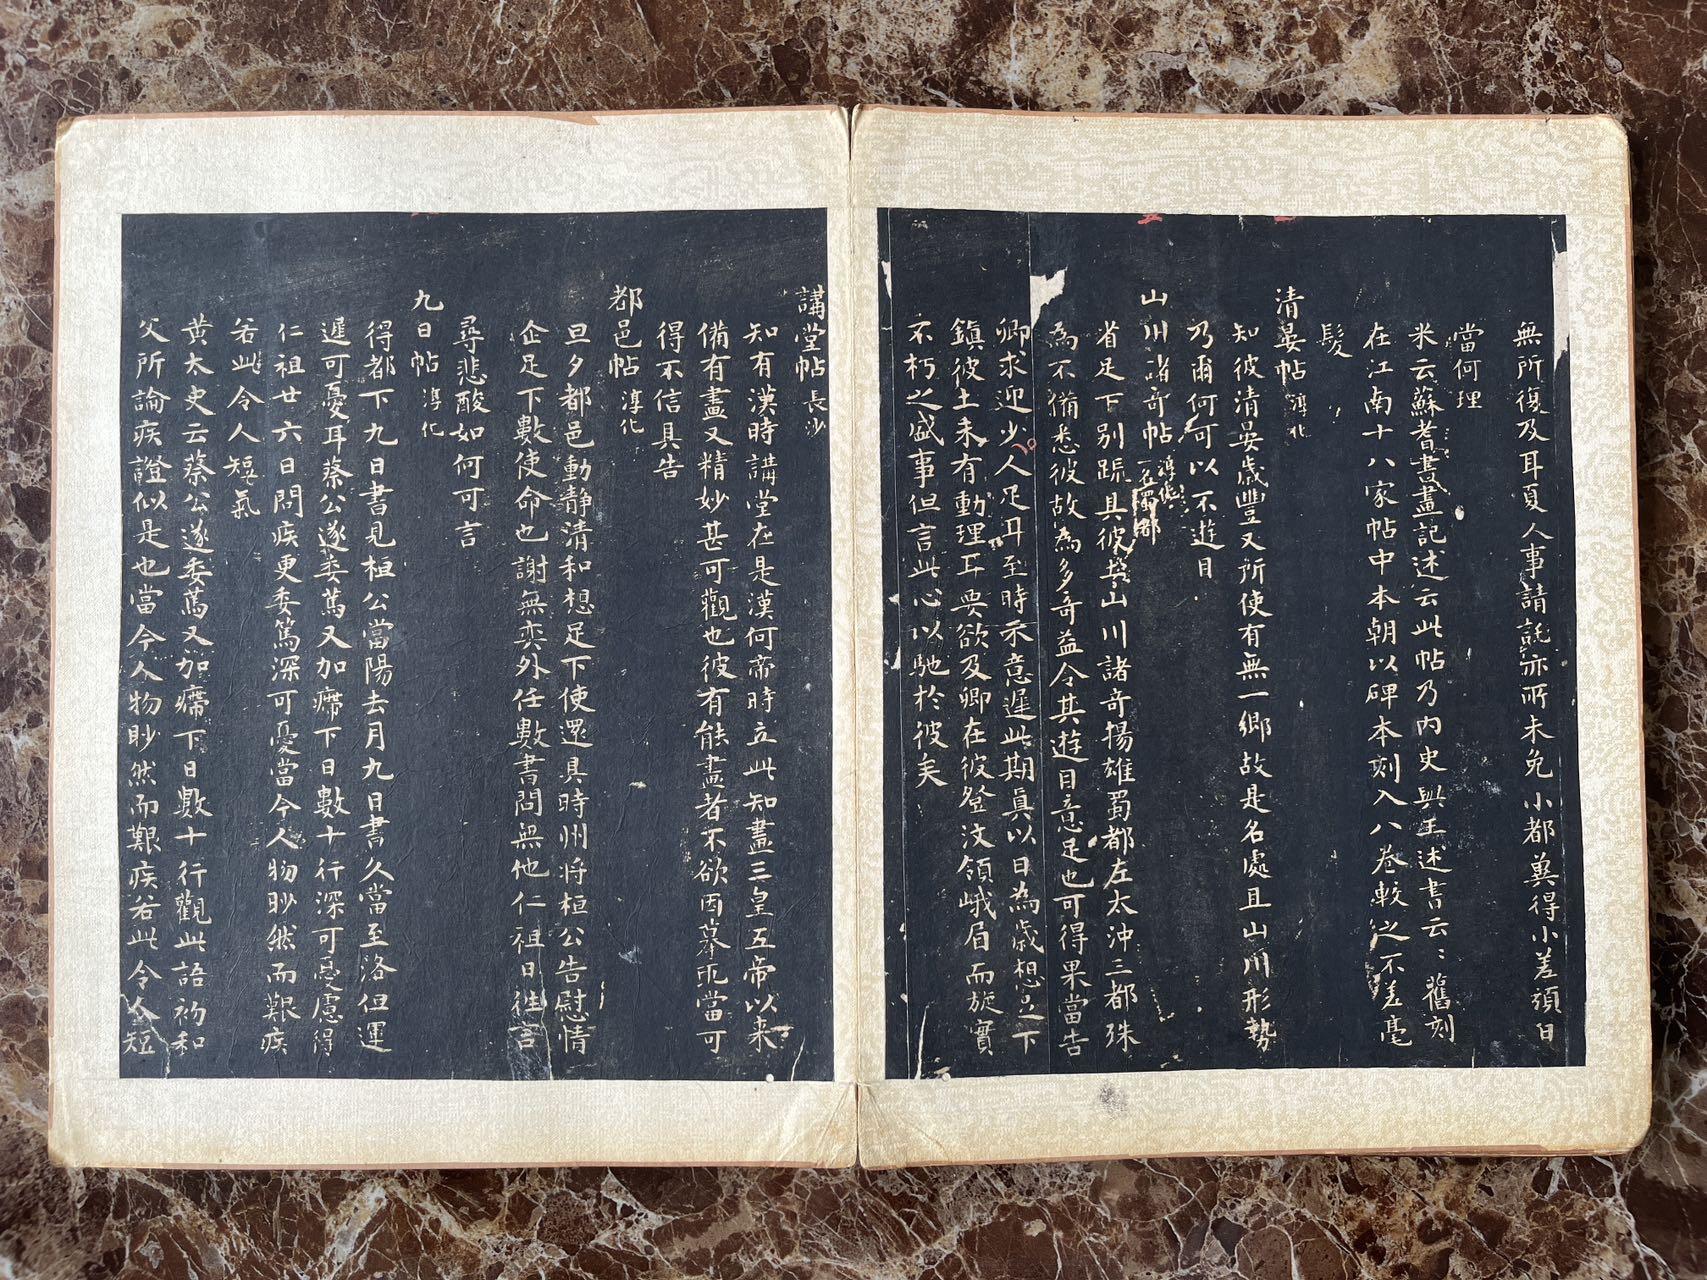 無所復及耳夏人事請託亦所未免小都冀得小差須日
當何理
米云蘇耆書畫記述云此帖乃內史與王述書云云舊刻
在江南十八家帖中本朝以碑本刻入八卷較之不差毫
髮
清晏帖 淳化
知彼清晏歲豐又所使有無一鄉故是名處且山川形勢
乃爾何可以不遊目
山川諸奇帖 淳化 在蜀都
省足下別疏具彼土山川諸奇揚雄蜀都左太沖三都殊
為不備悉彼故為多奇益令其遊目意足也可得果當告
卿求迎少人足耳至時示意遲此期真以日為歲想足下
鎮彼土未有動理耳要欲及卿在彼登汶領峨眉而旋實
不朽之盛事但言此心以馳於彼矣
講堂帖 長沙
知有漢時講堂在是漢何帝時立此知畫三皇五帝以来
備有畫又精妙甚可觀也彼有能畫者不欲因摹取當可
得不信具告
都邑帖 淳化
旦夕都邑動靜清和想足下使還具時州将桓公告慰情
企足下數使命也謝無奕外任數書問無他仁祖日往言
尋悲酸如何可言
九日帖 淳化
得都下九日書見桓公當陽去月九日書久當至洛但運
遲可憂耳蔡公遂委篤又加㿃下日數十行深可憂慮得
仁祖廿六日問疾更委篤深可憂當今人物眇然而艱疾
若此令人短氣
黄太史云蔡公遂委篤又加㿃下日數十行觀此語初和
父所論疾證似是也當今人物眇然而艱疾若此令人短